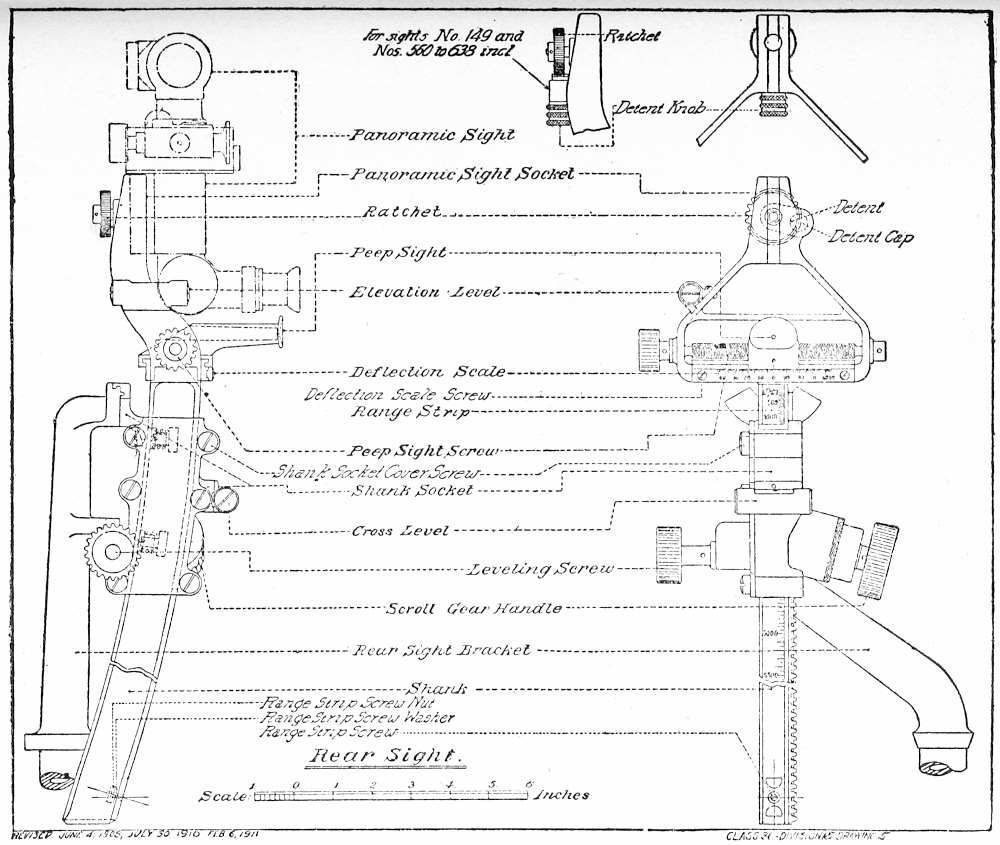 For sights No. 149 and
Nos. 560 to 638 incl.
Ratchet
Detent Knob
Panoramic Sight
Panoramic Sight Socket
Ratchet
Detent
Detent Cap
Peep Sight
Elevation Level
Deflection Scale
Deflection Scale Screw
Range Strip
Peep Sight Screw
Shank Socket Cover Screw
Shank Socket
Cross Level
Leveling Screw
Scroll Gear Handle
Rear Sight Bracket
Shank
Range Strip Screw Nut
Range Strip Screw Washer
Range Strip Screw
Rear Sight.
Scale:
1 0 1 2 3 4 5 6
Inches
REVISED JUNE 4, 1905, JULY 30 1910 FEB 6, 1911
DRAWING 5